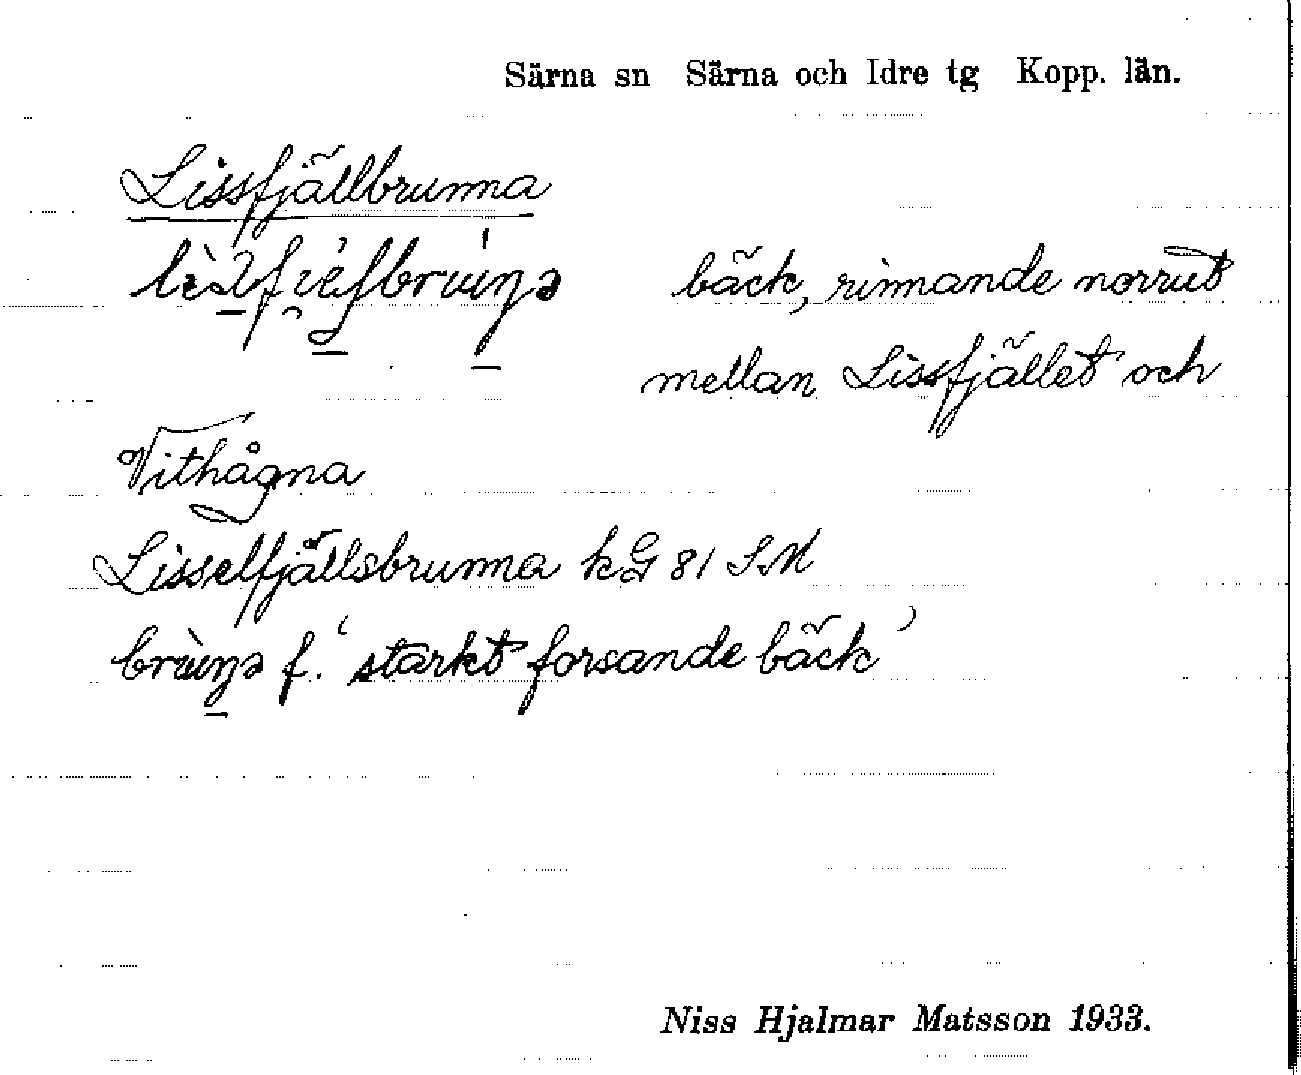 Särna sn Särna och Idre tg Kopp. län.
Lissfjällbrunna
bäck, rinnande norrut
mellan Lissfjället och
Vithågna
Lisselfjällsbrunna kG 81 SM
f. ‘starkt forsande bäck’
Niss Hjalmar Matsson 1933.